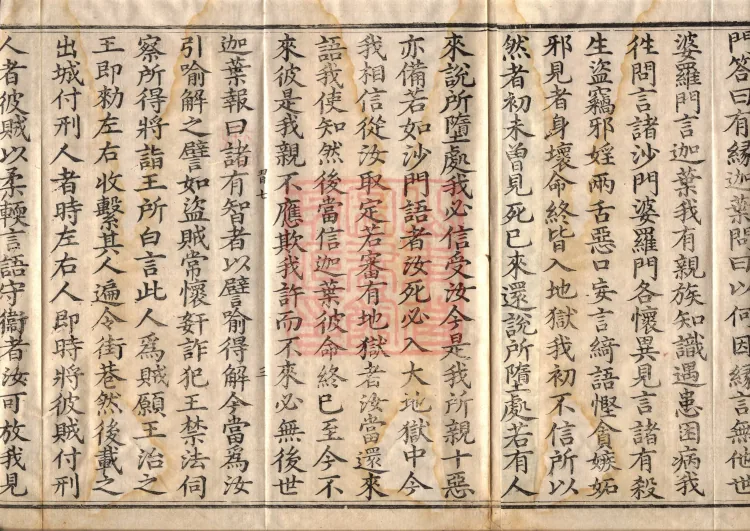 門答曰有緣迦葉問曰以何因緣言無他世
婆羅門言迦葉我有親族知識遇患困病我
徃問言諸沙門婆羅門各懷異見言諸有殺
生盜竊邪婬兩舌惡口妄言綺語慳貪嫉妬
邪見者身壞命終皆入地獄我初不信所以
然者初未曾見死已來還說所墮處若有人
來說所墮處我必信受汝今是我所親十惡
亦備若如沙門語者汝死必入大地獄中今
我相信從汝取定若審有地獄者汝當還來
語我使知然後當信迦葉彼命終已至今不
來彼是我親不應欺我許而不來必無後世
迦葉報曰諸有智者以譬喻得解今當為汝
引喻解之譬如盜賊常懷姧詐犯王禁法伺
察所得將詣王所白言此人為賊願王治之
王即勑左右收繫其人遍令街巷然後載之
出城付刑人者時左右人即時將彼賊付刑
人者彼賊以柔輭言語守衞者汝可放我見